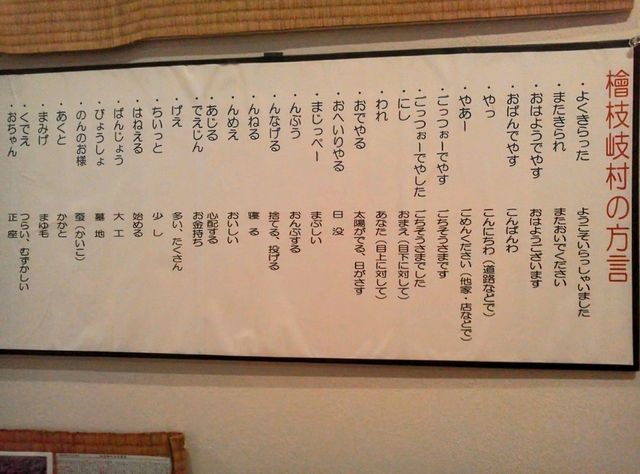 檜枝岐村の方言
・よくきらった ようこそいらっしゃいました
・またきられ またおいでください
・おはようでやす おはようございます
・おばんでやす こんばんわ
・やっ こんにちわ(道路などで)
・やあー ごめんください(他家・店などで)
・ごっつぉーでやす ごちそうさまです
・ごっつぉーでやした ごちそうさまでした
・にし おまえ(目下に対して)
・われ あなた(目上に対して)
・おでやる 太陽がでる、日がさす
・おへいりやる 日 没
・まじっぺー まぶしい
・んぶう おんぶする
・んなげる 捨てる、投げる
・んねる 寝 る
・んめえ おいしい
・あじる 心配する
・でえじん お金持ち
・げえ 多い、たくさん
・ちいっと 少 し
・はねえる 始める
・ばんじょう 大 工
・びょうしょ 墓 地
・のんのお様 蚕(かいこ)
・あくと かかと
・まみげ まゆ毛
・くでえ つらい、むずかしい
・おちゃん 正 座